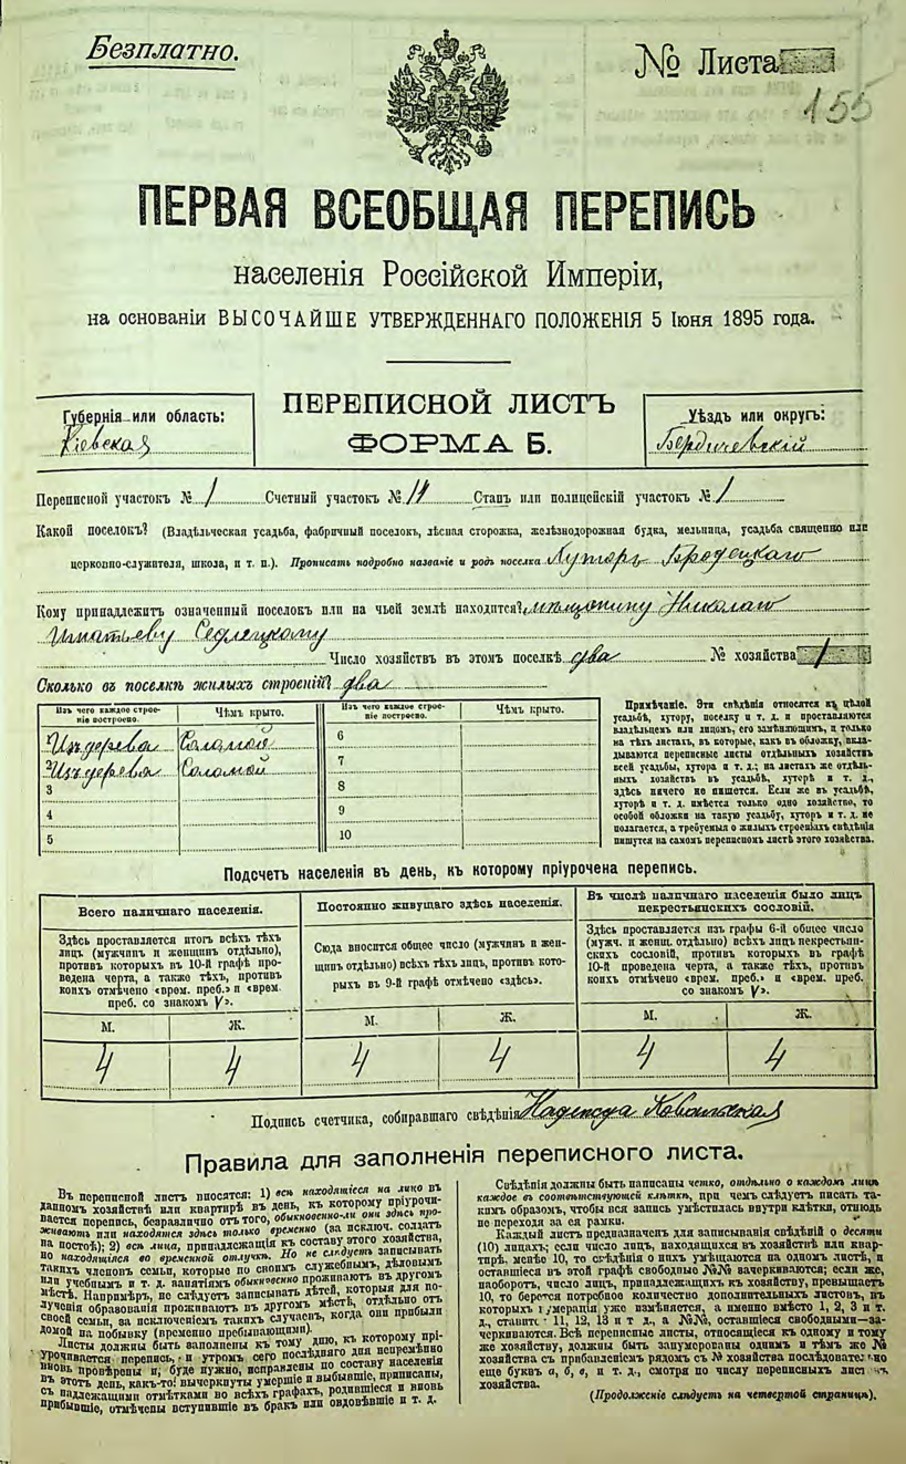 Безплатно.
№ Листа
155
ПЕРВАЯ ВСЕОБЩАЯ ПЕРЕПИСЬ
населенія Россійской Имперіи,
на основаніи ВЫСОЧАЙШЕ УТВЕРЖДЕННАГО ПОЛОЖЕНІЯ 5 Іюня 1895 года.
Губернія или область:
Кіевская
ПЕРЕПИСНОЙ ЛИСТЪ
ФОРМА Б.
Уѣздъ или округъ:
Бердичевскій
Переписной участокъ № 1 Счетный участокъ № 11 Станъ или полицейскій участокъ № 1
Какой поселокъ? (Владѣльческая усадьба, фабричный поселокъ, лѣсная сторожка, желѣзнодорожная будка, мельница, усадьба священно или
церковно-служителя, школа, и т. п.). Прописать подробно названіе и родъ поселка Хуторъ Бродецкаго
Кому принадлежитъ означенный поселокъ или на чьей землѣ находится? мѣщанину Николаю
Игнатьеву Седлецкому
Число хозяйствъ въ этомъ поселкѣ два № хозяйства 1
Сколько въ поселкѣ жилыхъ строеній? два
Изъ чего каждое строе-
ніе построено.
Чѣмъ крыто.
Изъ чего каждое строе-
ніе построено.
Чѣмъ крыто.
Изъ дерева Соломой 6
2 Изъ дерева Соломой 7
3 8
4 9
5 10
Примѣчаніе. Эти свѣдѣнія относятся къ цѣлой
усадьбѣ, хутору, поселку и т. д. и проставляются
владѣльцемъ или лицомъ, его замѣняющимъ, и только
на тѣхъ листахъ, въ которые, какъ въ обложку, вкла-
дываются переписные листы отдѣльныхъ хозяйствъ
всей усадьбы, хутора и т. д.; на листахъ же отдѣль-
ныхъ хозяйствъ въ усадьбѣ, хуторѣ и т. д.,
здѣсь ничего не пишется. Если же въ усадьбѣ,
хуторѣ и т. д. имѣется только одно хозяйство, то
особой обложки на такую усадьбу, хуторъ и т. д. не
полагается, а требуемыя о жилыхъ строеніяхъ свѣдѣнія
пишутся на самомъ переписномъ листѣ этого хозяйства.
Подсчетъ населенія въ день, къ которому пріурочена перепись.
Всего наличнаго населенія.
Здѣсь проставляется итогъ всѣхъ тѣхъ
лицъ (мужчинъ и женщинъ отдѣльно),
противъ которыхъ въ 10-й графѣ про-
ведена черта, а также тѣхъ, противъ
коихъ отмѣчено «врем. преб.» и «врем.
преб. со знакомъ V».
М. Ж.
4 4
Постоянно живущаго здѣсь населенія.
Сюда вносится общее число (мужчинъ и жен-
щинъ отдѣльно) всѣхъ тѣхъ лицъ, противъ кото-
рыхъ въ 9-й графѣ отмѣчено «здѣсь».
М. Ж.
4 4
Въ числѣ наличнаго населенія было лицъ
некрестьянскихъ сословій.
Здѣсь проставляется изъ графы 6-й общее число
(мужч. и женщ. отдѣльно) всѣхъ лицъ некрестьян-
скихъ сословій, противъ которыхъ въ графѣ
10-й проведена черта, а также тѣхъ, противъ
коихъ отмѣчено «врем. преб.» и «врем. преб.
со знакомъ V».
М. Ж.
4 4
Подпись счетчика, собиравшаго свѣдѣнія Надежда Ковальская
Правила для заполненія переписного листа.
Въ переписной листъ вносятся: 1) всѣ находящіеся на лицо въ
данномъ хозяйствѣ или квартирѣ въ день, къ которому пріурочи-
вается перепись, безразлично отъ того, обыкновенно-ли они здѣсь про-
живаютъ или находятся здѣсь только временно (за исключ. солдатъ
на постоѣ); 2) всѣ лица, принадлежащія къ составу этого хозяйства,
но находящіяся во временной отлучкѣ. Но не слѣдуетъ записывать
такихъ членовъ семьи, которые по своимъ служебнымъ, дѣловымъ
или учебнымъ и т. д. занятіямъ обыкновенно проживаютъ въ другомъ
мѣстѣ. Напримѣръ, не слѣдуетъ записывать дѣтей, которыя для по-
лученія образованія проживаютъ въ другомъ мѣстѣ, отдѣльно отъ
своей семьи, за исключеніемъ такихъ случаевъ, когда они прибыли
домой на побывку (временно пребывающими).
Листы должны быть заполнены къ тому дню, къ которому прі-
урочивается перепись, и утромъ сего послѣдняго дня непремѣнно
вновь провѣрены и, буде нужно, исправлены по составу населенія
въ этотъ день, какъ-то: вычеркнуты умершіе и выбывшіе, приписаны,
съ надлежащими отмѣтками во всѣхъ графахъ, родившіеся и вновь
прибывшіе, отмѣчены вступившіе въ бракъ или овдовѣвшіе и т. д.
Свѣдѣнія должны быть написаны четко, отдѣльно о каждомъ лицѣ
каждое въ соотвѣтствующей клѣткѣ, при чемъ слѣдуетъ писать та-
кимъ образомъ, чтобы вся запись умѣстилась внутри клѣтки, отнюдь
не переходя за ея рамки.
Каждый листъ предназначенъ для записыванія свѣдѣній о десяти
(10) лицахъ; если число лицъ, находящихся въ хозяйствѣ или квар-
тирѣ, менѣе 10, то свѣдѣнія о нихъ умѣщаются на одномъ листѣ, и
оставшіеся въ этой графѣ свободные №№ вачеркиваются; если же,
наоборотъ, число лицъ, принадлежащихъ къ хозяйству, превышаетъ
10, то берется потребное количество дополнительныхъ листовъ, въ
которыхъ нумерація уже измѣняется, а именно вмѣсто 1, 2, 3 и т.
д., ставится 11, 12, 13 и т д., а №№, оставшіеся свободными—за-
черкиваются. Всѣ переписные листы, относящіеся къ одному и тому
же хозяйству, должны быть занумерованы однимъ и тѣмъ же №
хозяйства съ прибавленіемъ рядомъ съ № хозяйства послѣдовательно
еще буквъ а, б, в, и т. д., смотря по числу переписныхъ листовъ
хозяйства.
(Продолженіе слѣдуетъ на четвертой страницѣ).